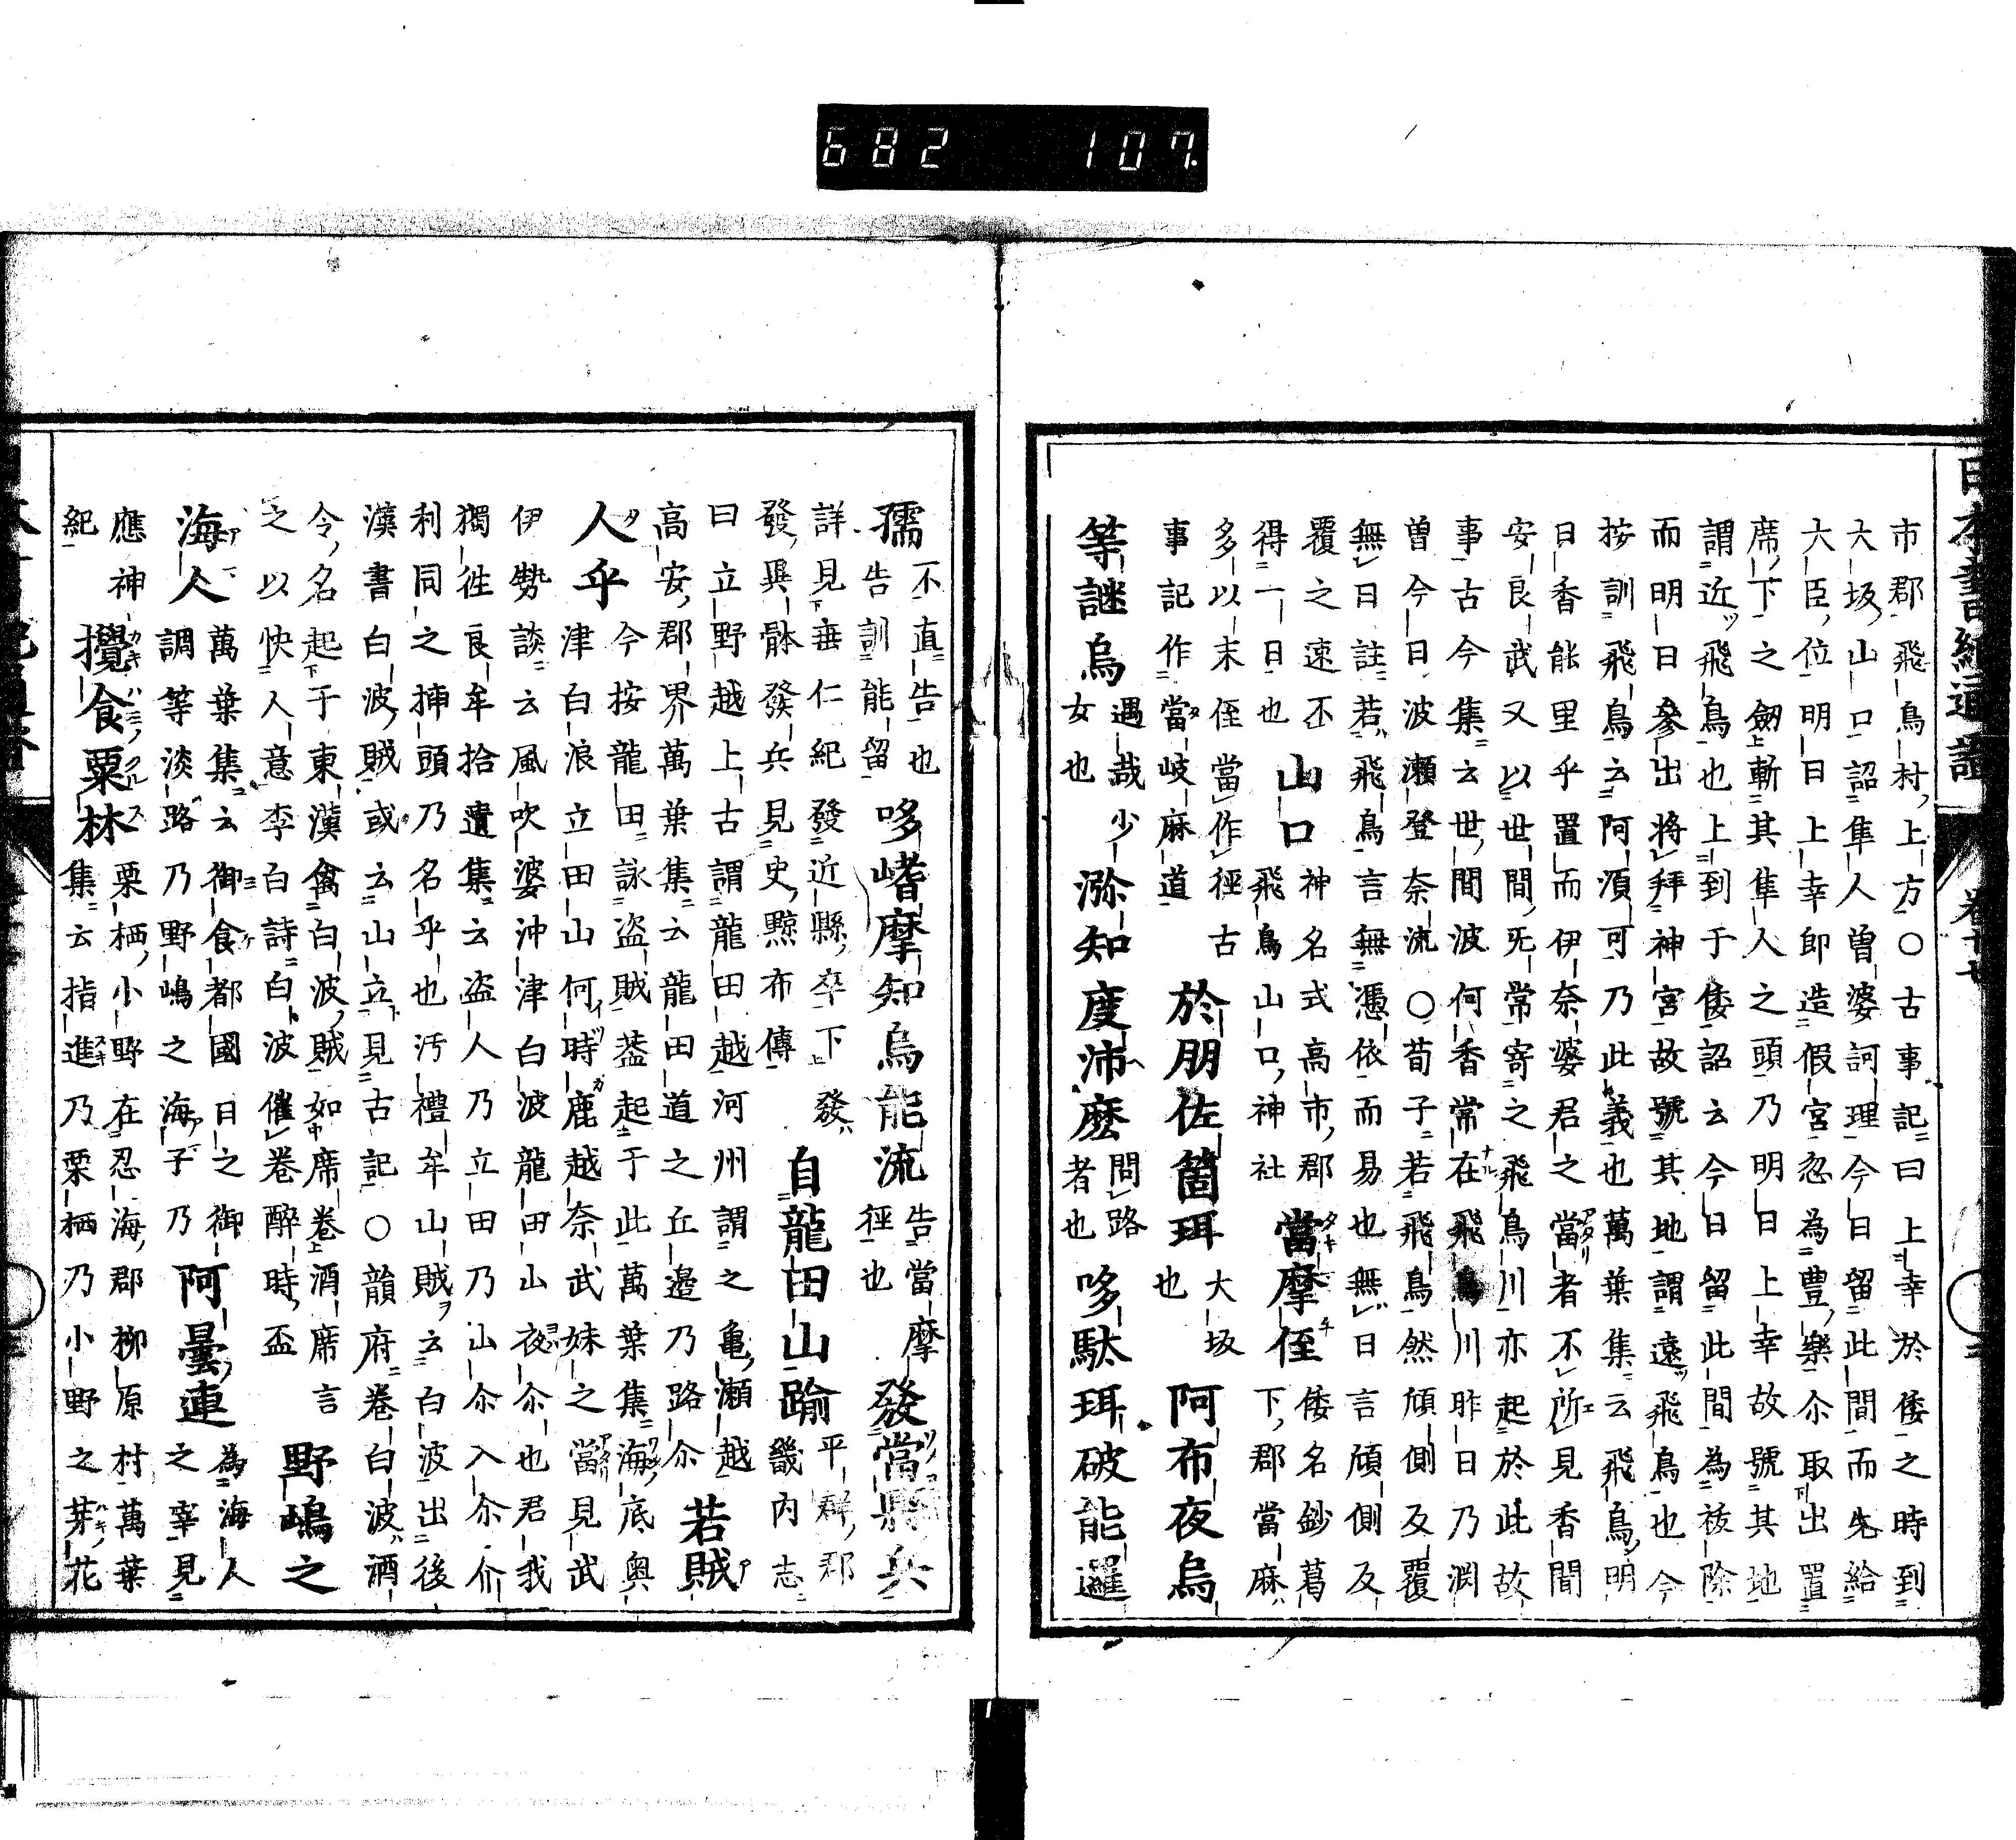 682 107.
市郡飛鳥村上方○古事記曰上幸於倭之時到
大坂山口詔隼人曽婆訶理今日留此間而先給
大臣位明日上幸即造假宮忽為豊樂尒取出置
席下之劒斬其隼人之頭乃明日上幸故號其地
謂近飛鳥也上到于倭詔云今日留此間為祓除
而明日参出将拜神宮故號其地謂遠飛鳥也今
按訓飛鳥云阿湏可乃此義也萬葉集云飛鳥明
日香能里乎置而伊奈婆君之當者不所見香聞
安良武又以世間旡常寄之飛鳥川亦起於此故
事古今集云世間波何香常在飛鳥川昨日乃渕
曽今日波瀬登奈流○荀子若飛鳥然頎側反覆
無日註若飛鳥言無憑依而易也無日言頎側反
覆之速不
得一日也
山口
神名式高市郡
飛鳥山口神社
當摩侄
倭名鈔葛
下郡當麻
多以末侄當作徑古
事記作當岐麻道
於朋佐箇珥
大坂
也
阿布夜烏
等謎烏
遇哉少
女也
瀰知度沛麽
問路
者也
哆駄珥破能邏
孺
不直告也
告訓能留
哆嗜摩知烏能流
告當摩
徑也
發當縣兵
詳見垂仁紀發近縣卒下發
發異體發兵見史黥布傳
自龍田山踰
平群郡
畿内志
曰立野越上古謂龍田越河州謂之亀瀬越
高安郡界萬葉集云龍田道之丘邉乃路尒
若賊
人乎
今按龍田詠盗賊葢起于此萬葉集海底奥
津白浪立田山何時鹿越奈武妹之當見武
伊勢談云風吹婆沖津白波龍田山夜尒也君我
獨徃良牟拾遺集云盗人乃立田乃山尒入尒介
利同之揷頭乃名乎也汚禮牟山賊云白波出後
漢書白波賊或云山立見古記○韻府巻白波酒
令名起于東漢禽白波賊如席巻酒席言
之以快人意李白詩白波催巻醉時盃
野嶋之
海人
萬葉集云御食都國日之御
調等淡路乃野嶋之海子乃
阿曇連
為海人
之宰見
應神
紀
攪食粟林
栗栖小野在忍海郡柳原村萬葉
集云指進乃栗栖乃小野之芽花